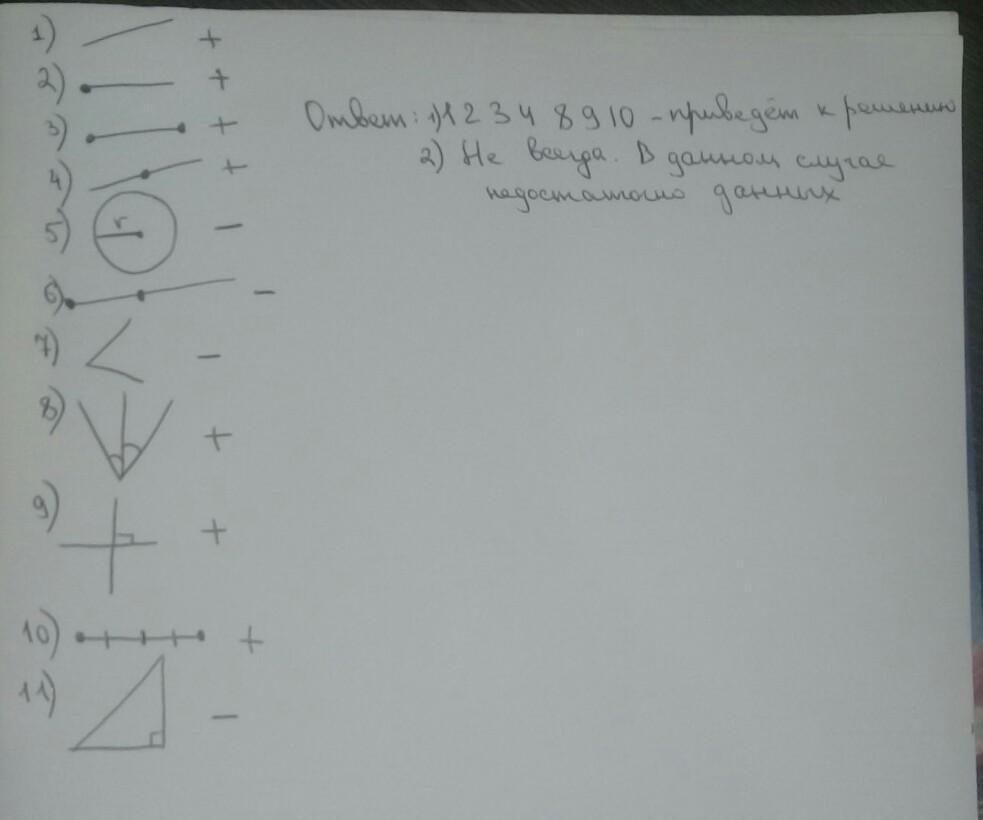 1) +
2) +
3) +
4) +
5) r −
6) −
7) −
8) +
9) +
10) +
11) −
Ответ: 1) 1 2 3 4 8 9 10 - приведёт к решению
2) Не всегда. В данном случае
недостаточно данных